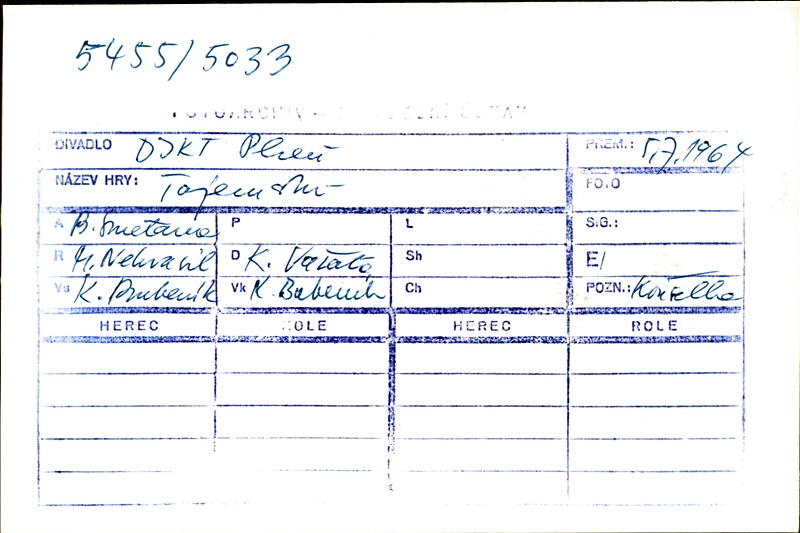 5455/5033
DIVADLO DJKT Plzeň PREM.: 5.7.1964
NÁZEV HRY: Tajemství FOTO
A B. Smetana P L SIG.:
R M. Nehvasil D K. Vašata Sh E/
Vs K. Bubeník Vk K. Bubeník Ch POZN.:
HEREC ROLE HEREC ROLE